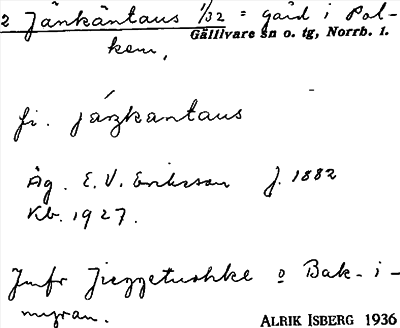 2 Jänkäntaus 1/32 = gård i Pol-
Gällivare sn o. tg, Norrb. l.
kem,
fi. járkantaus
Äg. E. V. Eriksson f. 1882
Kb. 1927.
Jmfr Jieggetuohke o Bak-i-
myran.
ALRIK ISBERG 1936